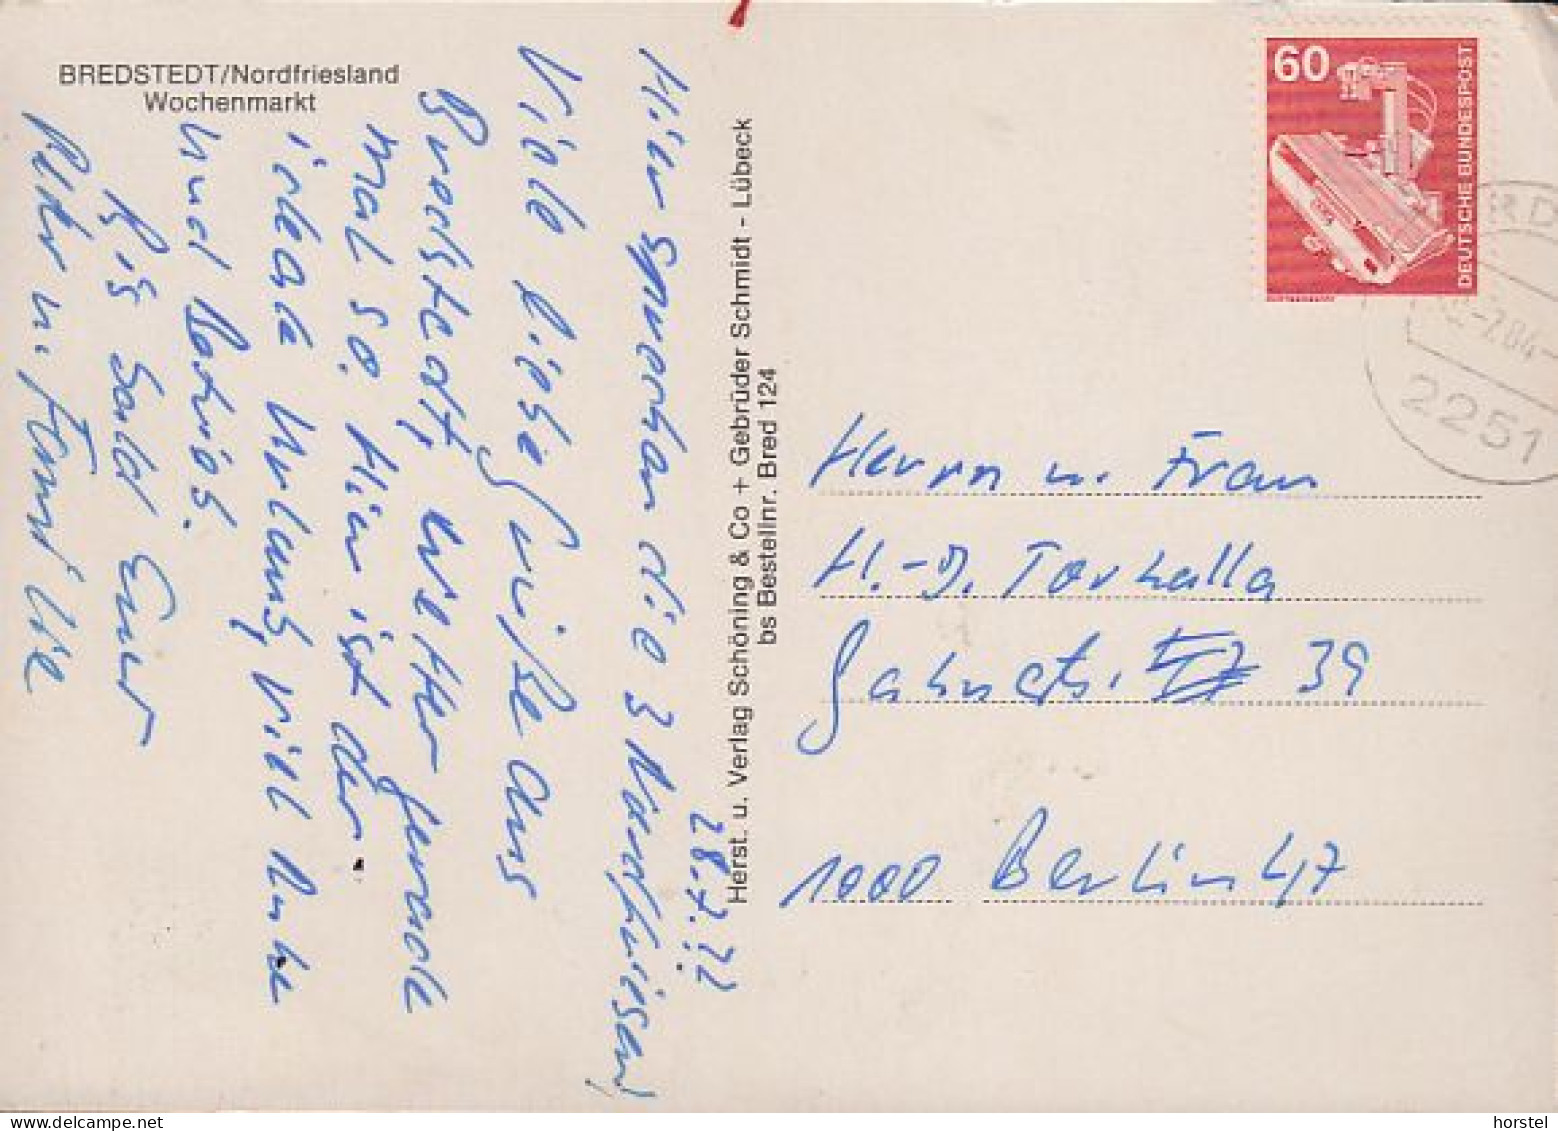 BREDSTEDT/Nordfriesland
Wochenmarkt
28.7.
Hier sprechen die 3 Nordfriesen!
Viele liebe Grüße aus
Bredstedt, Wetter gerade
mal so. Hier ist der
ideale Urlaub, viel Ruhe
und
Bis bald Euer
Peter u. Hannelore
Herst. u. Verlag Schöning & Co + Gebrüder Schmidt - Lübeck
bs Bestellnr. Bred 124
60
DEUTSCHE BUNDESPOST
2251
Herrn u. Frau
H.-J. Torhalla
39
1000 Berlin 47
horstel